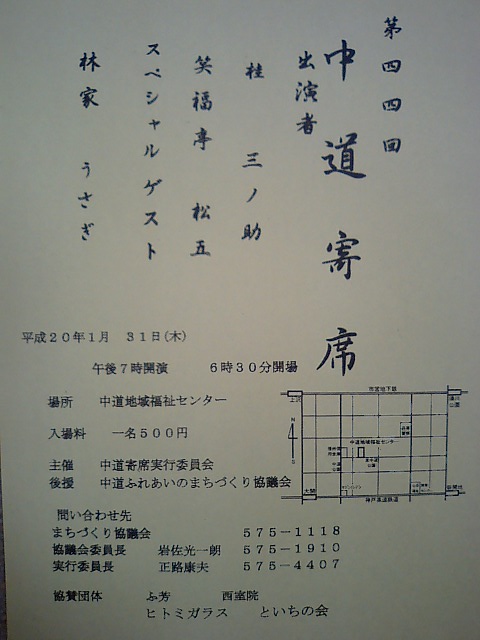 第四四回
中道寄席
出演者
桂 三ノ助
笑福亭 松五
スペシャルゲスト
林家 うさぎ
平成20年1月 31日(木)
午後7時開演 6時30分開場
場所 中道地域福祉センター
入場料 一名500円
主催 中道寄席実行委員会
後援 中道ふれあいのまちづくり協議会
市営地下鉄
上沢
湊川公園
N
S
中道地域福祉センター
中道公園
大開
新開地
神戸高速鉄道
問い合わせ先
まちづくり協議会 575-1118
協議会委員長 岩佐光一朗 575-1910
実行委員長 正路康夫 575-4407
協賛団体 ふ芳 西室院
ヒトミガラス といちの会